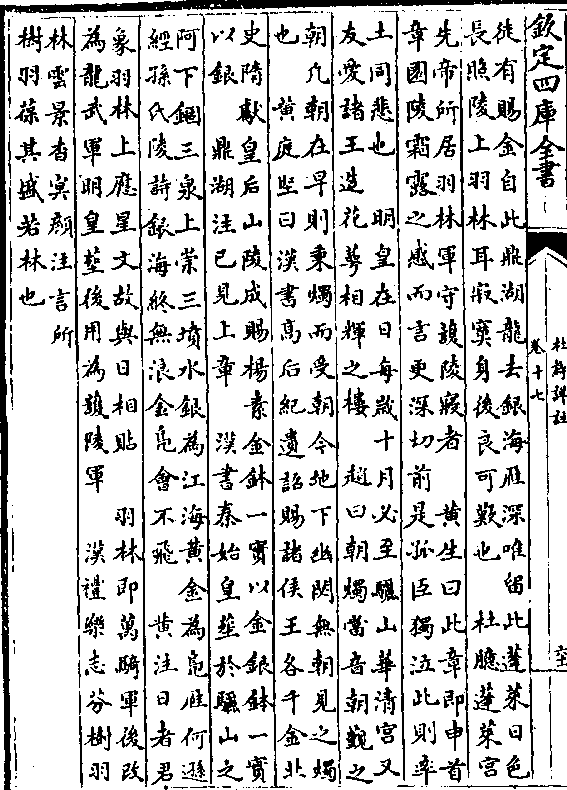 欽定四庫全書
杜詩詳註
卷十七
徒有賜金自此鼎湖龍去銀海雁深唯留此蓬萊日色
長照陵上羽林耳寂寞身後良可歎也　杜臆蓬萊宮
先帝所居羽林軍守護陵寢者　黃生曰此章即申首
章園陵霜露之感而言更深切前是孤臣獨泣此則率
土同悲也　明皇在日每歲十月必至驪山華清宮又
友愛諸王造花萼相輝之樓　趙曰朝燭當音朝覲之
朝凡朝在早則秉燭而受朝今地下幽閟無朝見之燭
也　黃庭堅曰漢書高后紀遺詔賜諸侯王各千金北
史隋獻皇后山陵成賜楊素金鉢一實以金銀鉢一實
以銀　鼎湖注已見上章　漢書秦始皇塟於驪山之
阿下錮三泉上崇三墳水銀為江海黃金為鳧雁何遜
經孫氏陵詩銀海終無浪金鳧會不飛　黃注日者君
象羽林上應星文故與日相貼　羽林即萬騎軍後改
為龍武軍明皇塟後用為護陵軍　漢禮樂志芬樹羽
林雲景杳冥顔注言所
樹羽葆其盛若林也